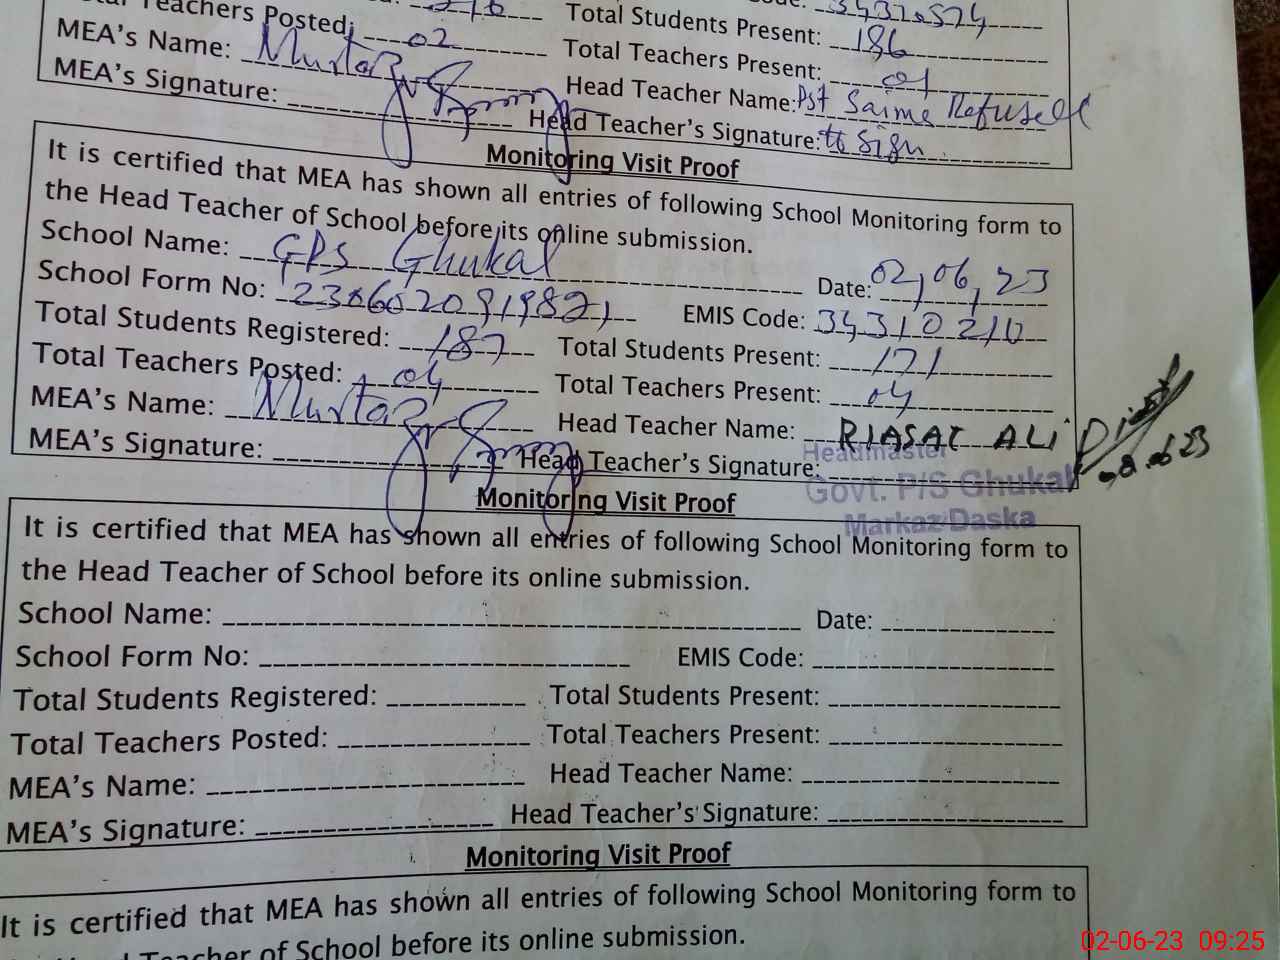 Teachers Posted: 02 Total Students Present: 186
MEA's Name: Murtaza Total Teachers Present: 01
MEA's Signature: Head Teacher Name: Pst Saima Refused
Head Teacher's Signature: to sign
Monitoring Visit Proof
It is certified that MEA has shown all entries of following School Monitoring form to
the Head Teacher of School before its online submission.
School Name: GPS Ghukal Date: 02,06,23
School Form No: EMIS Code: 34310210
Total Students Registered: 187 Total Students Present: 171
Total Teachers Posted: 04 Total Teachers Present: 04
MEA's Name: Murtaza Head Teacher Name: RIASAT ALI
MEA's Signature: Head Teacher's Signature:
Headmaster
Govt. P/S Ghukal
Markaz Daska
Monitoring Visit Proof
It is certified that MEA has shown all entries of following School Monitoring form to
the Head Teacher of School before its online submission.
School Name: Date:
School Form No: EMIS Code:
Total Students Registered: Total Students Present:
Total Teachers Posted: Total Teachers Present:
MEA's Name: Head Teacher Name:
MEA's Signature: Head Teacher's Signature:
Monitoring Visit Proof
It is certified that MEA has shown all entries of following School Monitoring form to
Head Teacher of School before its online submission.
02-06-23 09:25